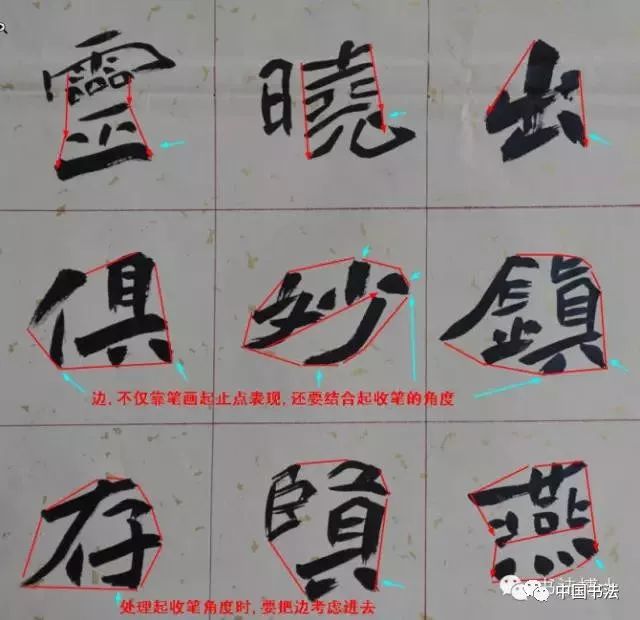 靈 曉 出
俱 妙 鎮
边,不仅靠笔画起止点表现,还要结合起收笔的角度
存 賢 燕
处理起收笔角度时,要把边考虑进去
书法博士
中国书法